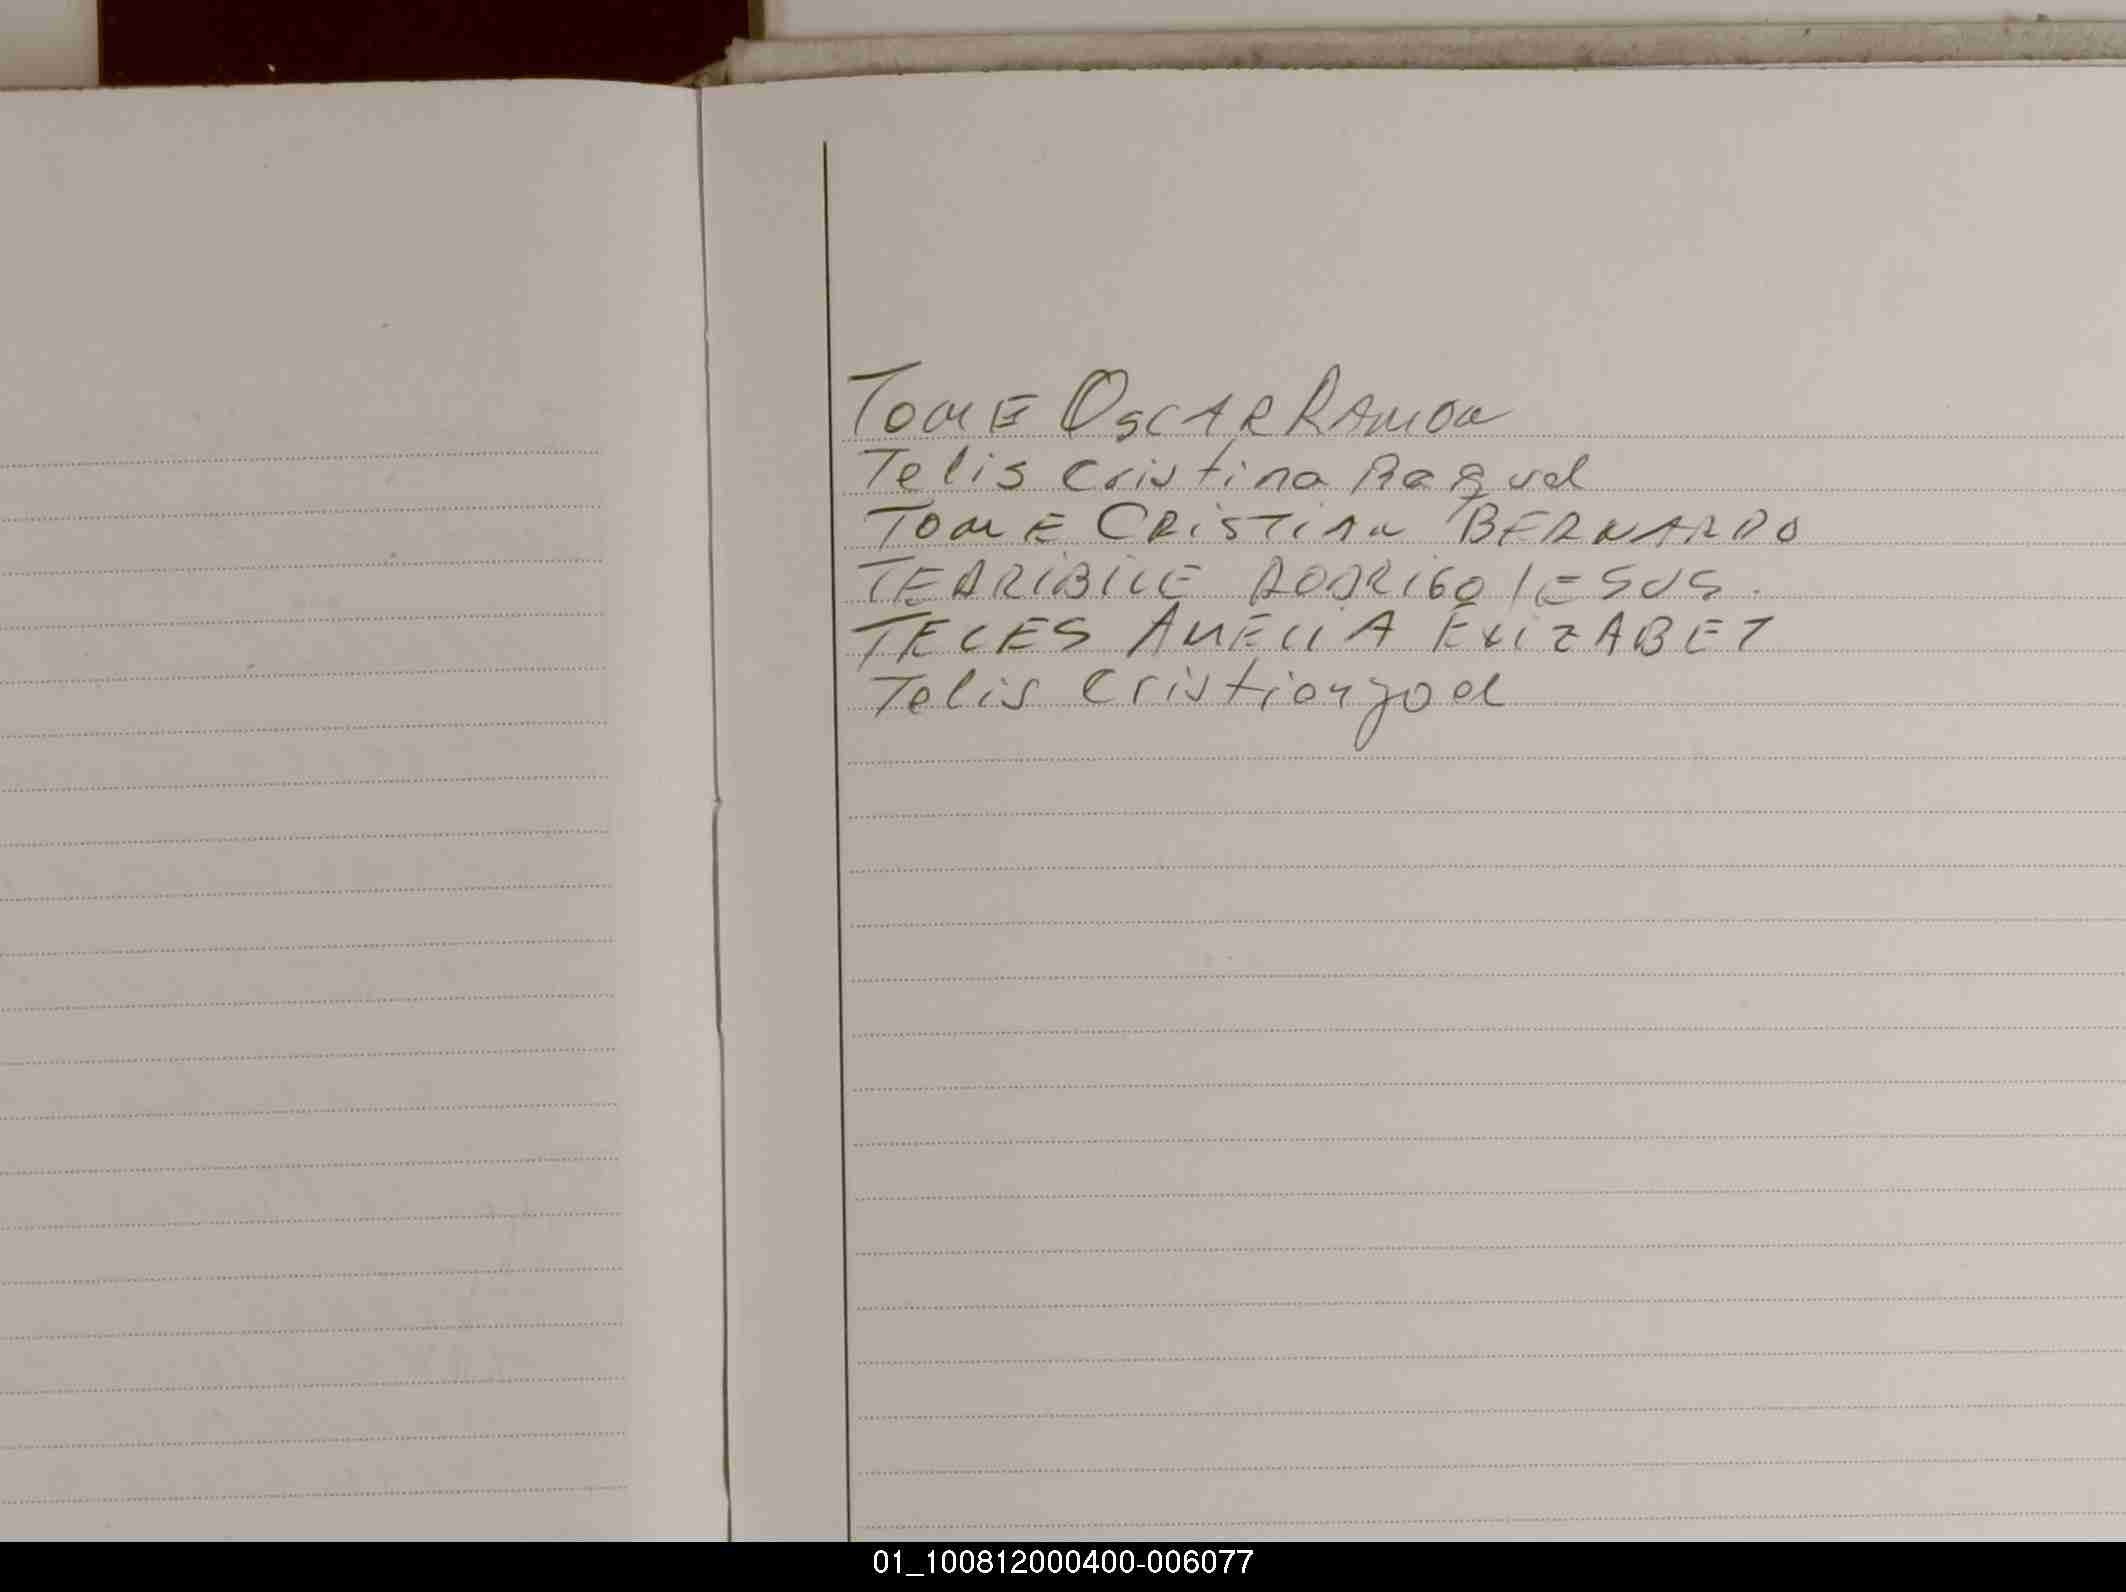 TOME OSCAR RAMON
Telis Cristina Raquel
TOME CRISTIAN BERNARDO
TERRIBILE RODRIGO JESUS.
TELES AMELIA ELIZABET
Telis Cristian Joel
01_100812000400-006077